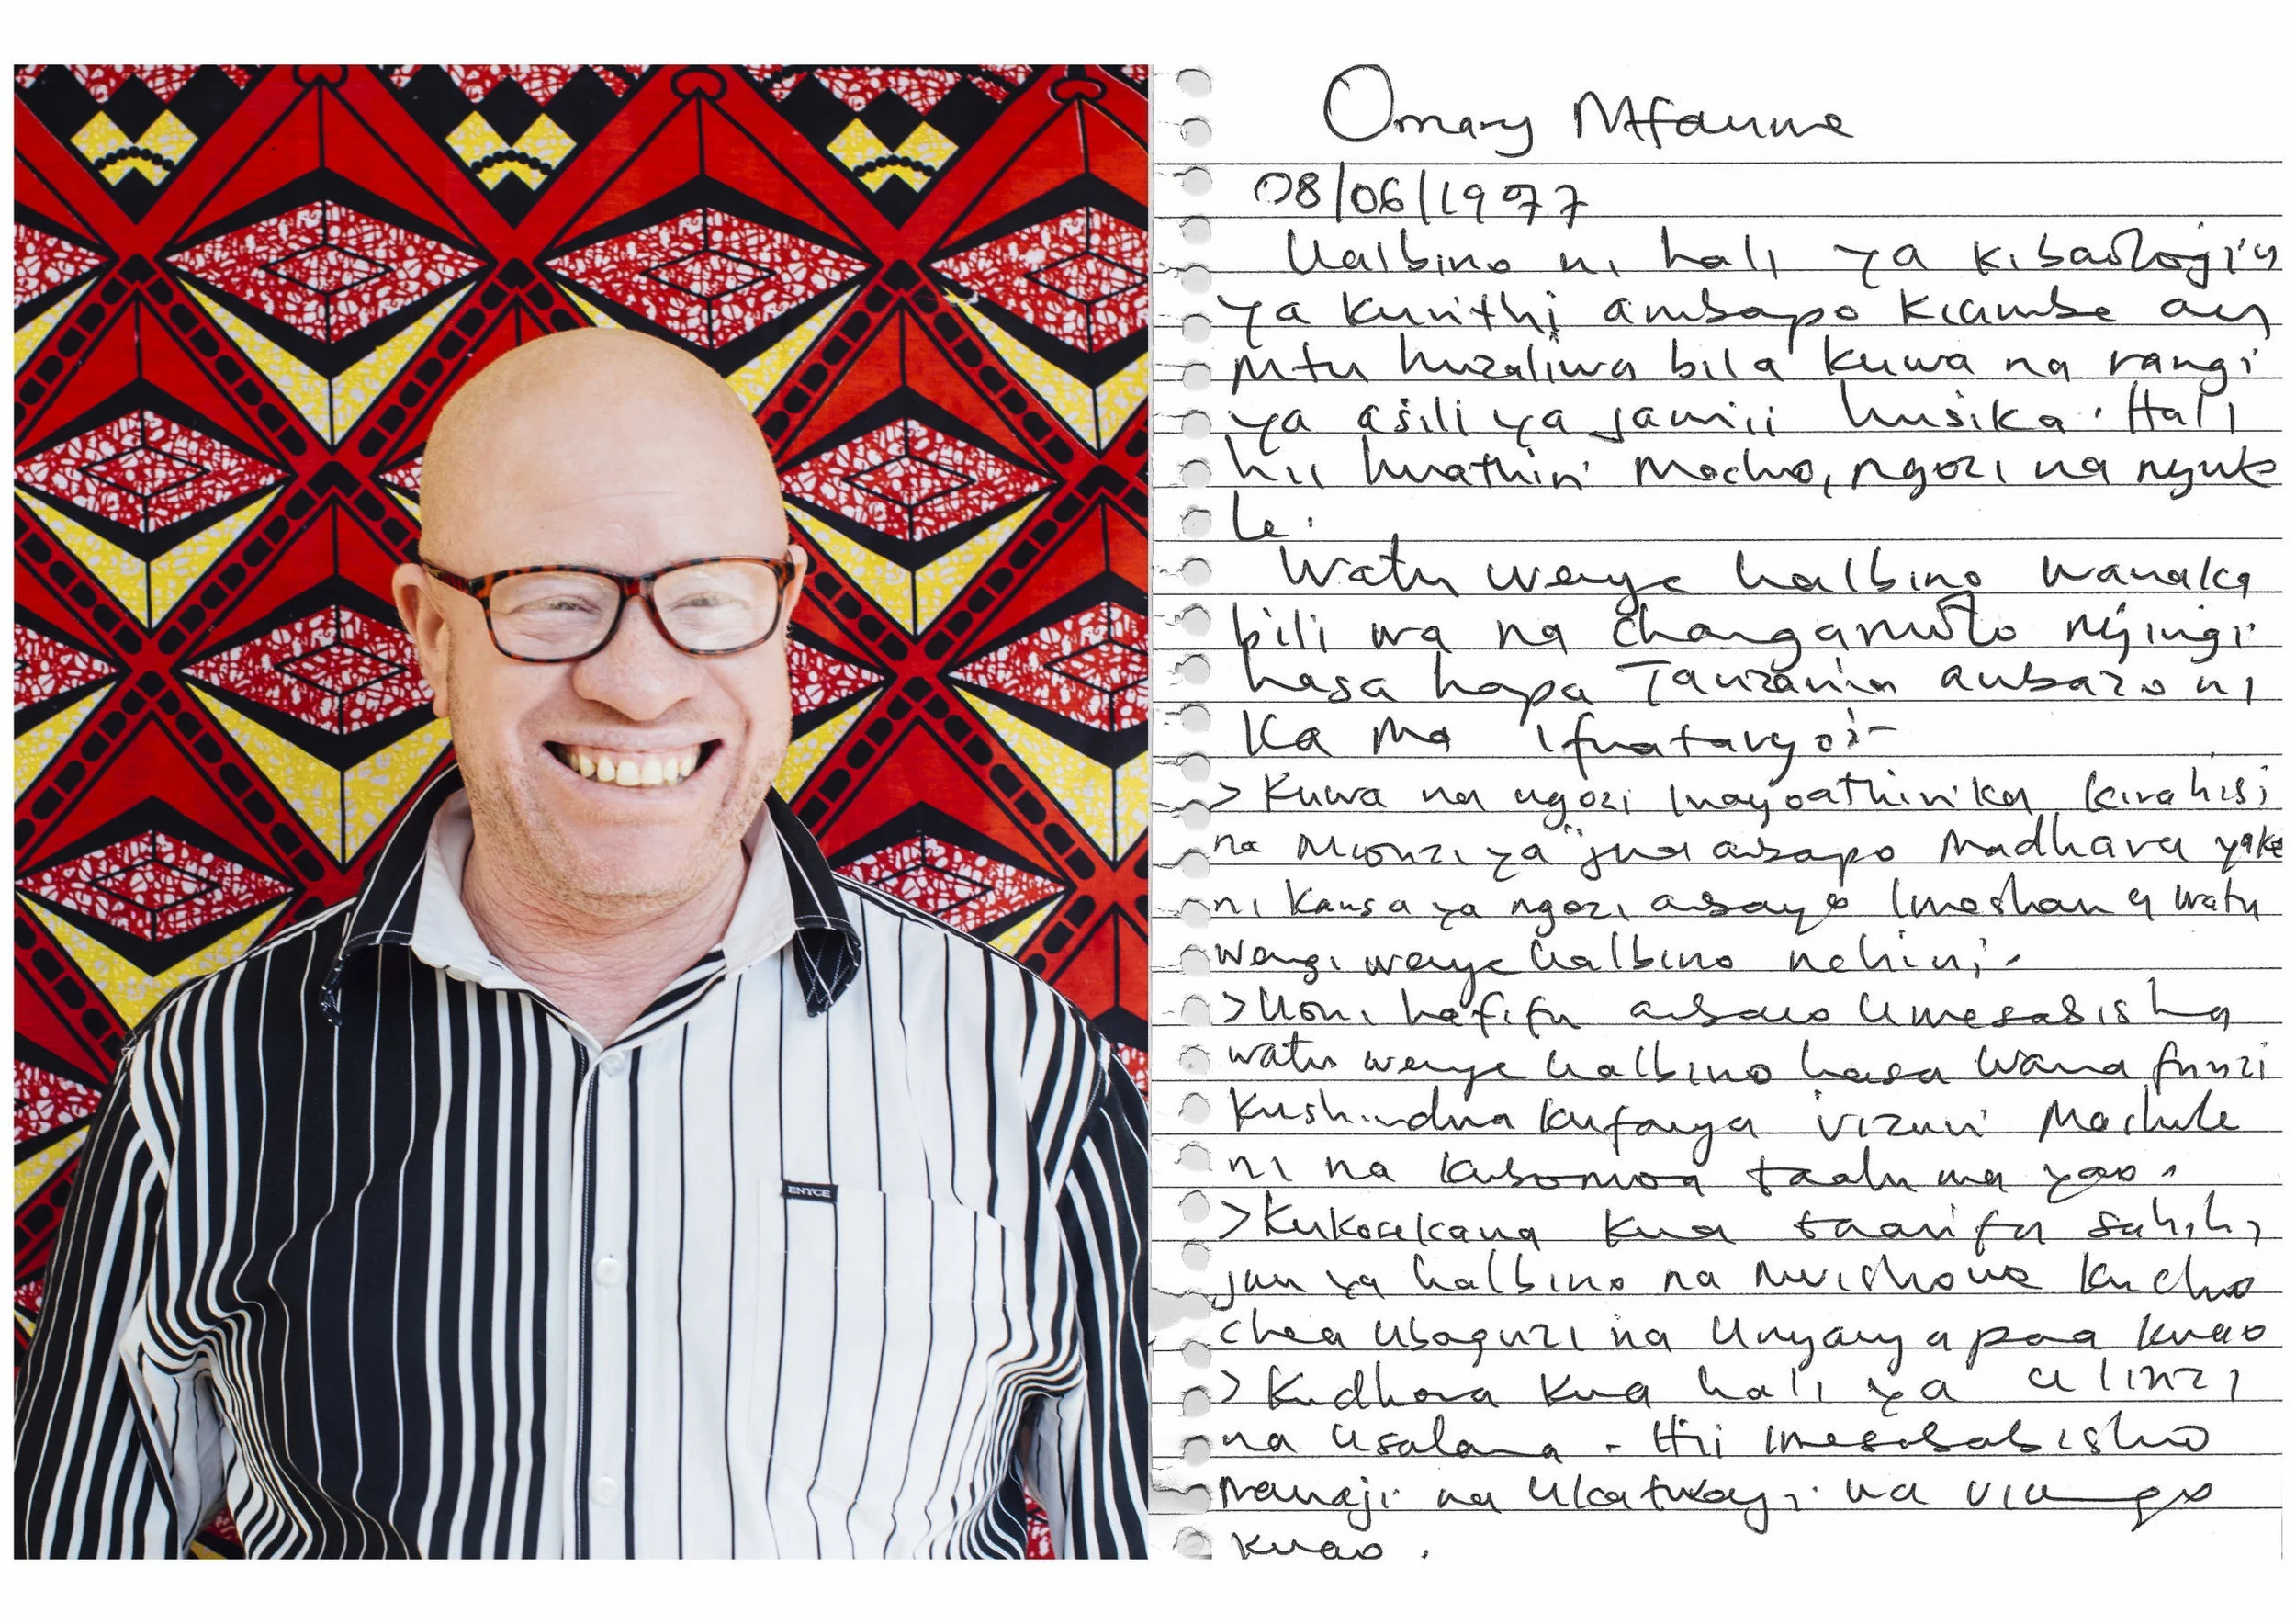 Omary Mfaume
08/06/1977
Ualbino ni hali ya kibaologia
ya kurithi ambapo kiumbe au
mtu huzaliwa bila kuwa na rangi
ya asili ya jamii husika. Hali
hii huathiri macho, ngozi na nywe
le.
Watu wenye ualbino wanaka
bili wa na changamoto nyingi
hasa hapa Tanzania ambazo ni
Ka ma ifuatavyo:-
> Kuwa na ngozi inayoathirika kirahisi
na mionzi ya jua ambapo madhara yake
ni kansa ya ngozi ambayo imeshau a watu
wengi wenye ualbino nchini.
> Uoni hafifu ambao umesababisha
watu wenye ualbino hasa wanafunzi
kushindwa kufanya vizuri mashule
ni na kubomoa taaluma yao.
> Kukosekana kwa taarifa sahihi
juu ya ualbino na mwishowe kucho
chea ubaguzi na unyanyapaa kwao
> Kudhora kwa hali ya ulinzi
na usalama. Hii imesababisha
mauaji na ukatwaji wa viungo
kwao.
ENYCE